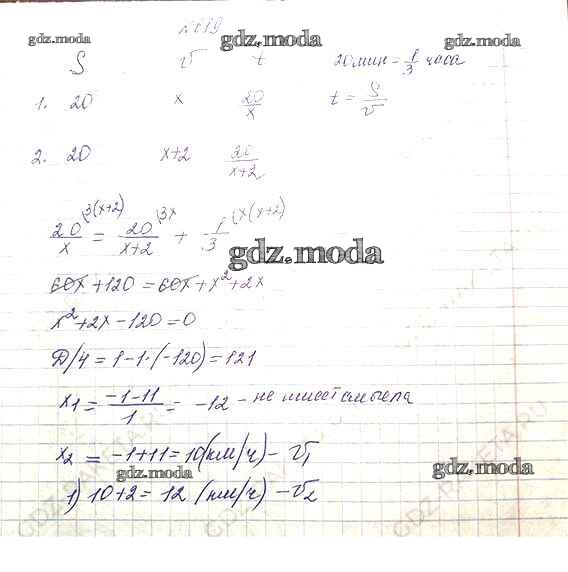 gdz.moda
gdz.moda
S v t 20 мин = 1/3 часа
gdz.moda
1. 20 x 20/x t = S/v
2. 20 x+2 20/(x+2)
20/x \3(x+2) = 20/(x+2) \3x + 1/3 \x(x+2)
gdz.moda
60x + 120 = 60x + x² + 2x
x² + 2x - 120 = 0
D/4 = 1 - 1·(-120) = 121
x1 = (-1-11)/1 = -12 - не имеет смысла
x2 = -1+11 = 10 (км/ч) - v1
gdz.moda
gdz.moda
1) 10+2 = 12 (км/ч) - v2